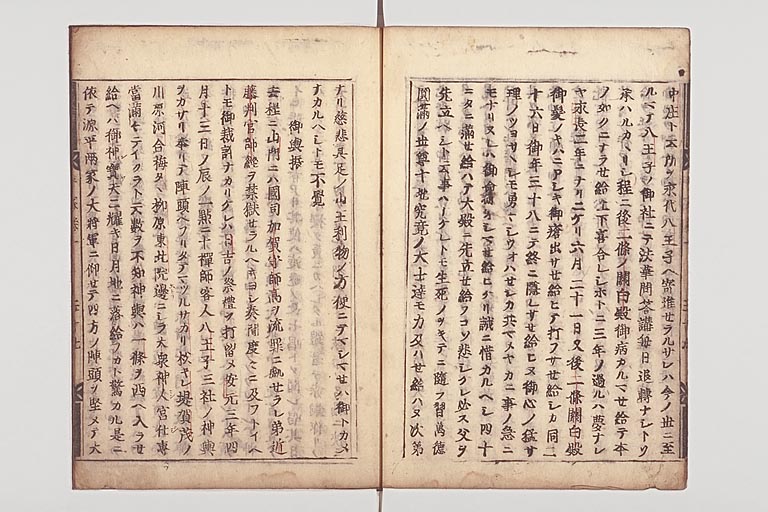 ルマテ八王子ノ御社ニテ法華問答講毎日退轉ナシトソ
承ハルカヽリシ程ニ後二條ノ關白殿御病カルマセ給テ本
ノ如クニナラセ給上下喜合レシホトニ三年ノ過ルハ夢ナレ
ヤ永長二年ニナリニケリ六月二十一日又後二條關白殿
御髪ノキハニアシキ御瘡出サセ給ヒテ打フサセ給シカ同二
十六日御年三十八ニテ終ニ隠レサセ給ヒヌ御心ノ猛サ
理ノツヨサ モ勇々シウヲハセシカ共マメヤカニ事ノ急ニ
モナリヌレハ御命ヲ惜マセ給ヒケリ誠ニ惜カルヘシ四十
ニタニ滿セ給ハテ大殿ニ先立セ給フコソ悲シケレ必ス父ヲ
先立ヘシト云事ハナケレトモ生死ノヲキテニ隨フ習萬德
圓滿ノ世尊十地究竟ノ大士達モ力及ハセ給ハヌ次第
ナリ慈悲具足ノ山王利物ノ方便ニテマシマセハ御トカメ
ナカルヘシトモ不覺
御輿振
去程ニ山門ニハ國司加賀守師高ヲ流罪ニ處セラレ弟近
藤判官師經ヲ禁獄セラルヘキヨシ奏聞度々ニ及フトイヘ
トモ御裁許ナカリケレハ日吉ノ祭禮ヲ打留メ安元三年四
月十三日ノ辰ノ一點ニ十禪師客人八王子三社ノ神輿
ヲカサリ奉リテ陣頭ヘフリタテマツルサカリ松キレ堤賀茂ノ
川原河合梅タヽ柳原東北院邊ニシラ大衆神人宮仕専
當滿々テイクラト云數ヲ不知神輿ハ一條ヲ西ヘ入ラセ
給ヘハ御神寶天ニ耀キ日月地ニ落給フカト驚カル是ニ
依テ源平兩家ノ大將軍ニ仰セテ四方ノ陣頭ヲ堅メテ大